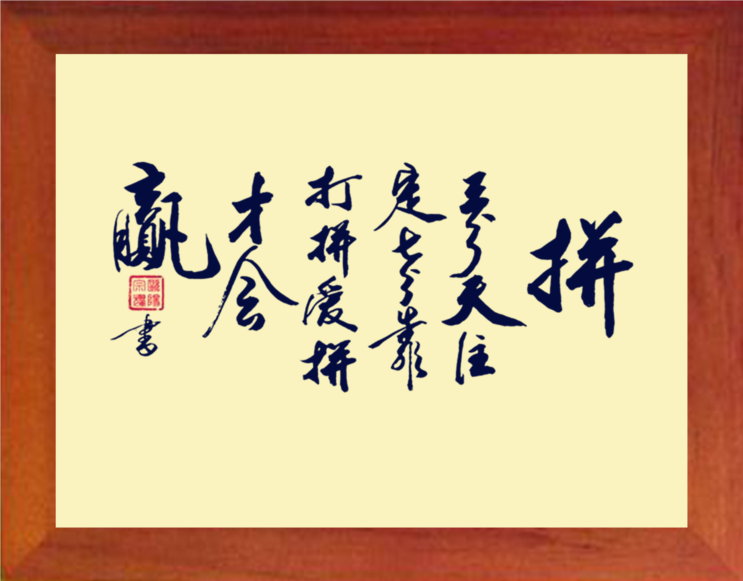 拼
三分天注
定七分靠
打拼爱拼
才会
赢
书